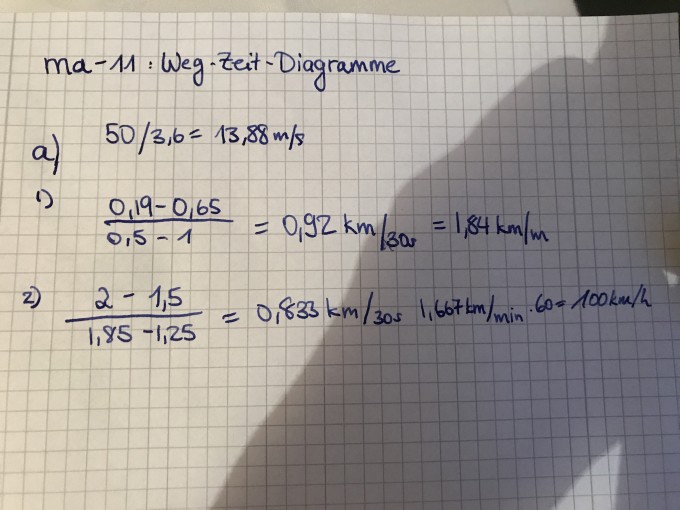 ma-11: Weg-Zeit-Diagramme
a) 50/3,6 = 13,88 m/s
1) (0,19 - 0,65)/(0,5 - 1) = 0,92 km/30s = 1,84 km/m
2) (2 - 1,5)/(1,85 - 1,25) = 0,833 km/30s 1,667 km/min · 60 = 100 km/h